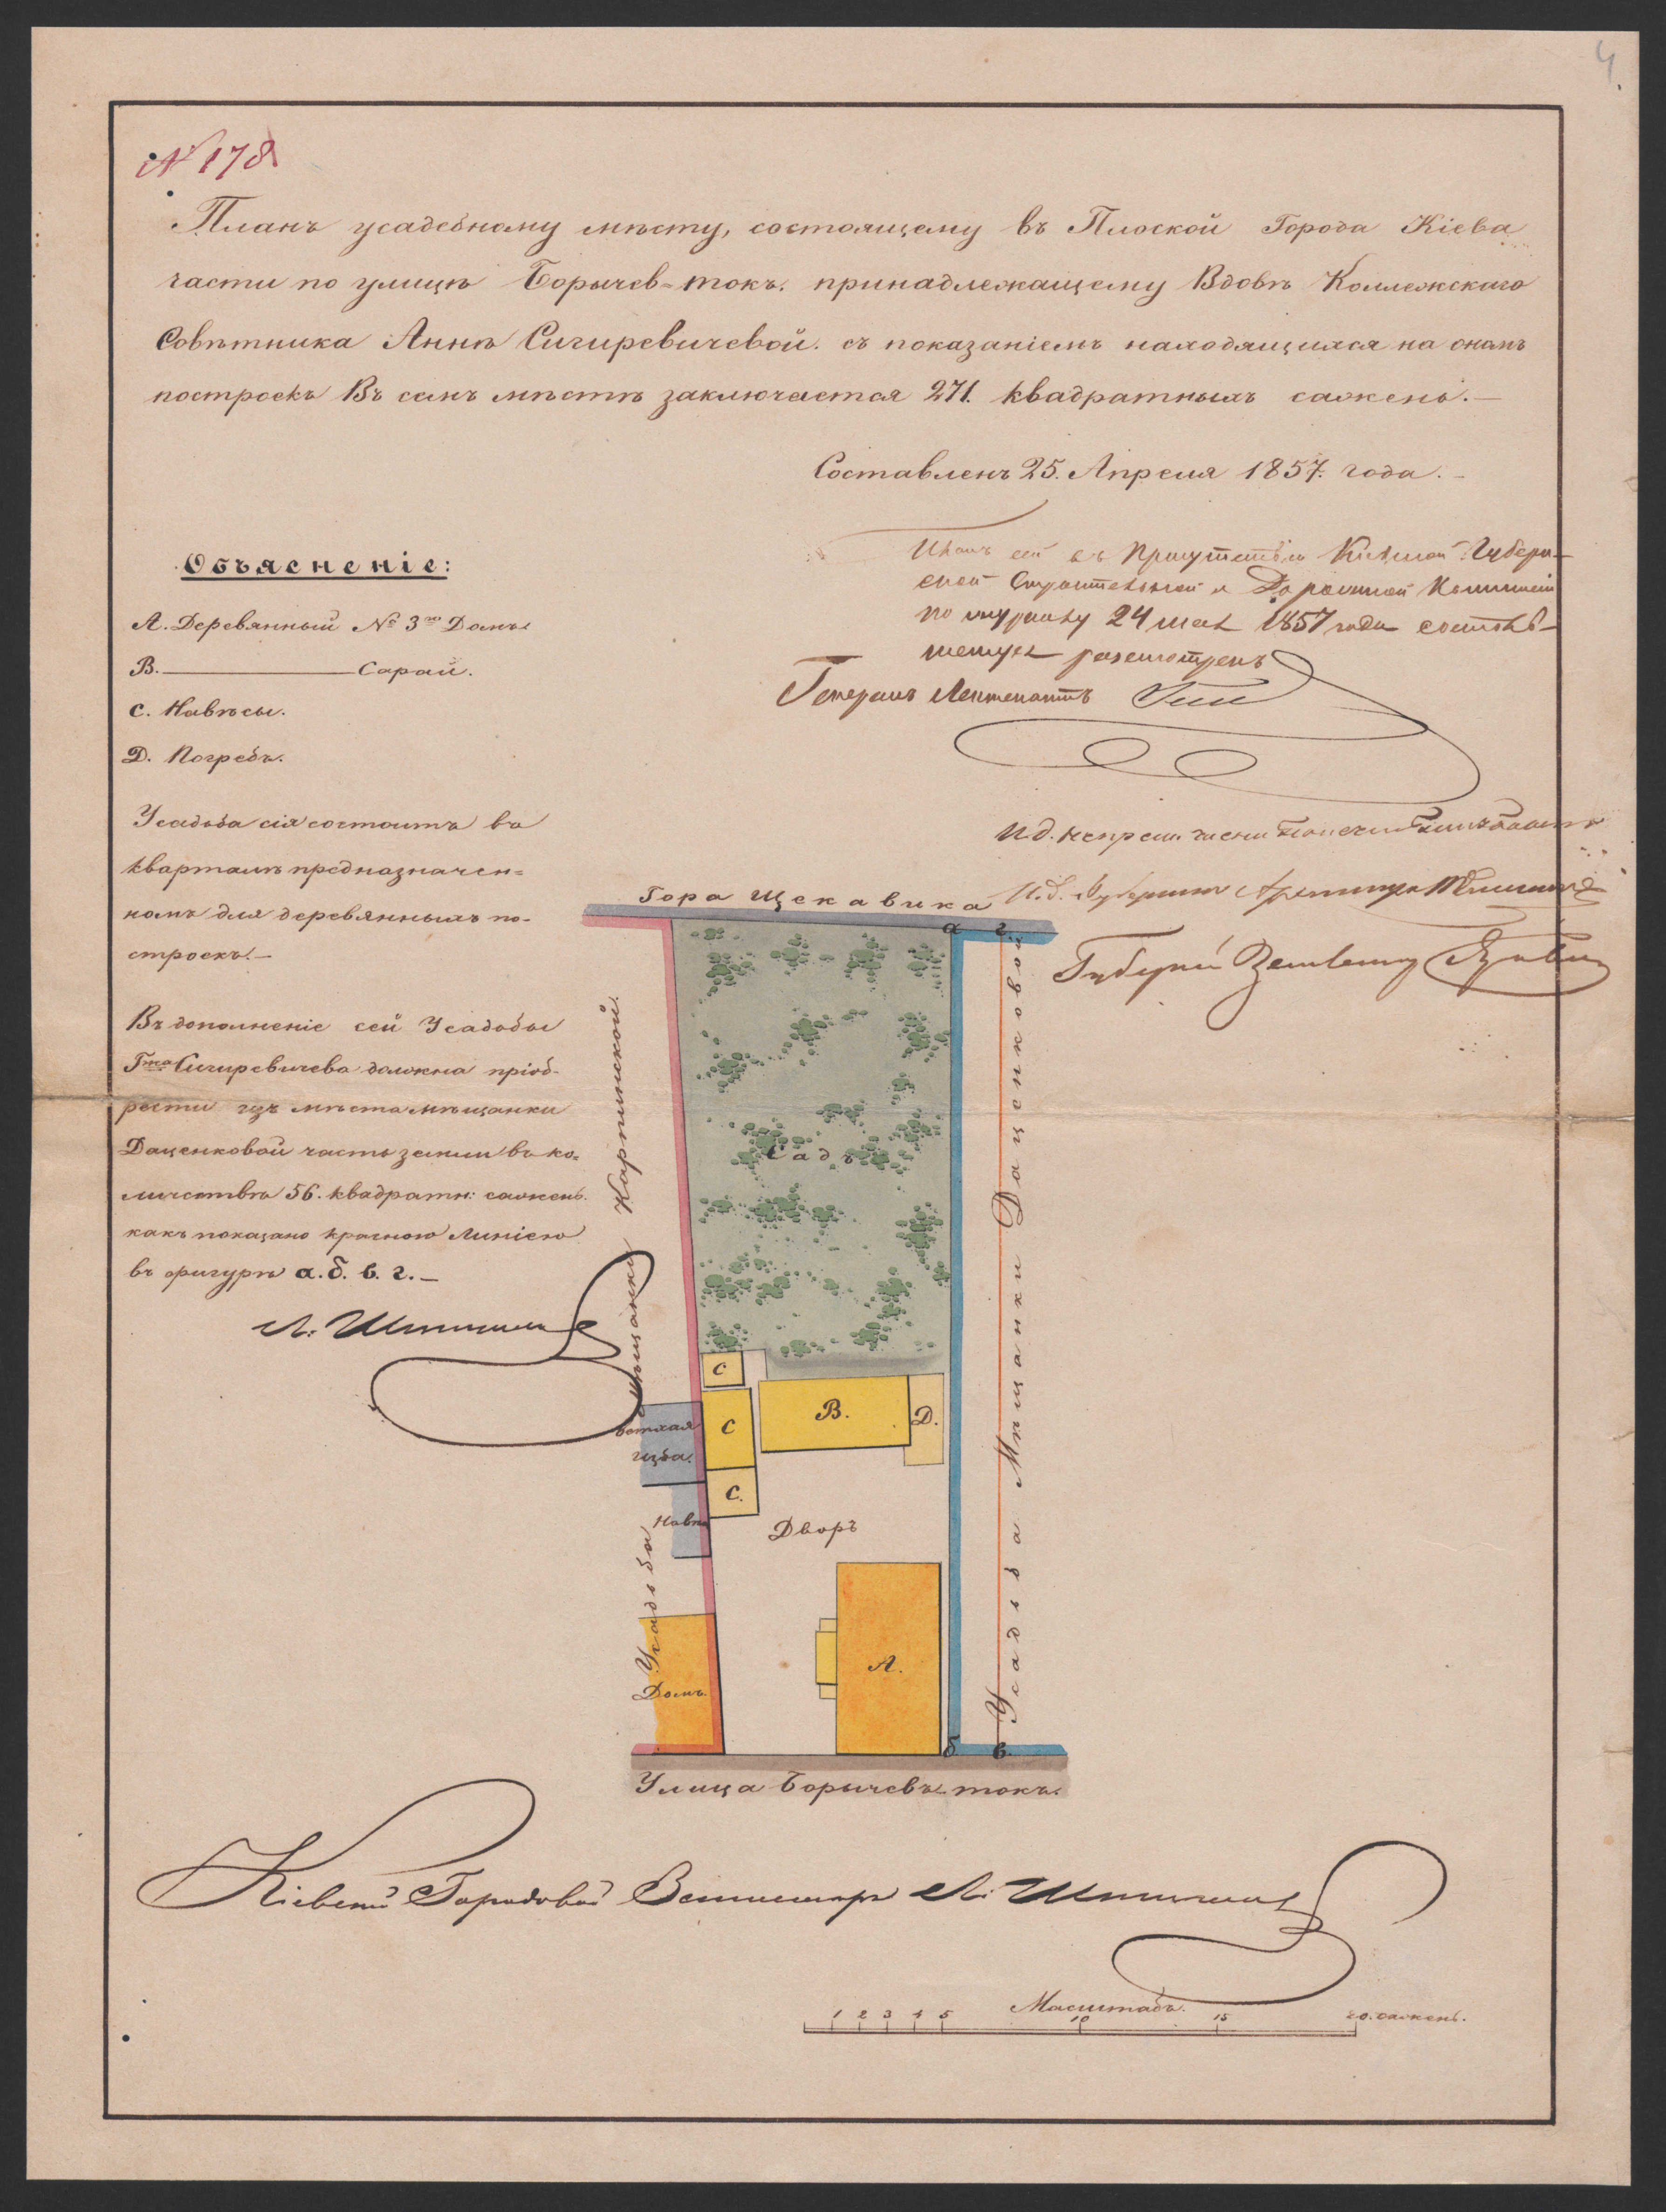 4.
№ 178
Планъ усадебному мѣсту, состоящему въ Плоской Города Кіева
части по улицѣ Борычев=токъ. принадлежащему Вдовѣ Коллежскаго
Совѣтника Аннѣ Сигиревичевой. съ показаніемъ находящихся на ономъ
построекъ Въ семъ мѣстѣ заключается 271. квадратныхъ сажень.—
Составленъ 25. Апреля 1857. года.—
Планъ сей въ Присутствіи Кіевской Губерн-
ской Строительной и Дорожной Коммисіи
по журналу 24 мая 1857 года состояв-
шемуся разсмотренъ
Генералъ Лейтенантъ
И.д. Непрем. члена
И.д. Губернск. Архитектора
Губерн. Землемеръ
Объясненіе:
А. Деревянный № 3го Домъ
В. ——— Сарай.
С. Навѣсы.
Д. Погребъ.
Усадьба сія состоитъ въ
кварталѣ предназначен=
номъ для деревянныхъ по-
строекъ.—
Въ дополненіе сей Усадьбы
Гжа Сигиревичева должна пріоб-
рести изъ мѣста мѣщанки
Даценковой часть земли въ ко=
личествѣ 56. квадратн: сажень.
какъ показано красною Линіею
въ фигурѣ а. б. в. г.—
Л. Шмигель
Гора Щекавика
а г.
Усадьба мѣщанки Карпинской.
Садъ
Усадьба Мѣщанки Даценковой
С
С
С.
В.
Д.
ветхая
изба.
Навѣ
Дворъ
А.
Домъ.
б в.
Улица Борычевъ токъ.
Кіевскій Городовой Землемеръ Л. Шмигель
Масштабъ.
1 2 3 4 5 10 15 20. сажень.